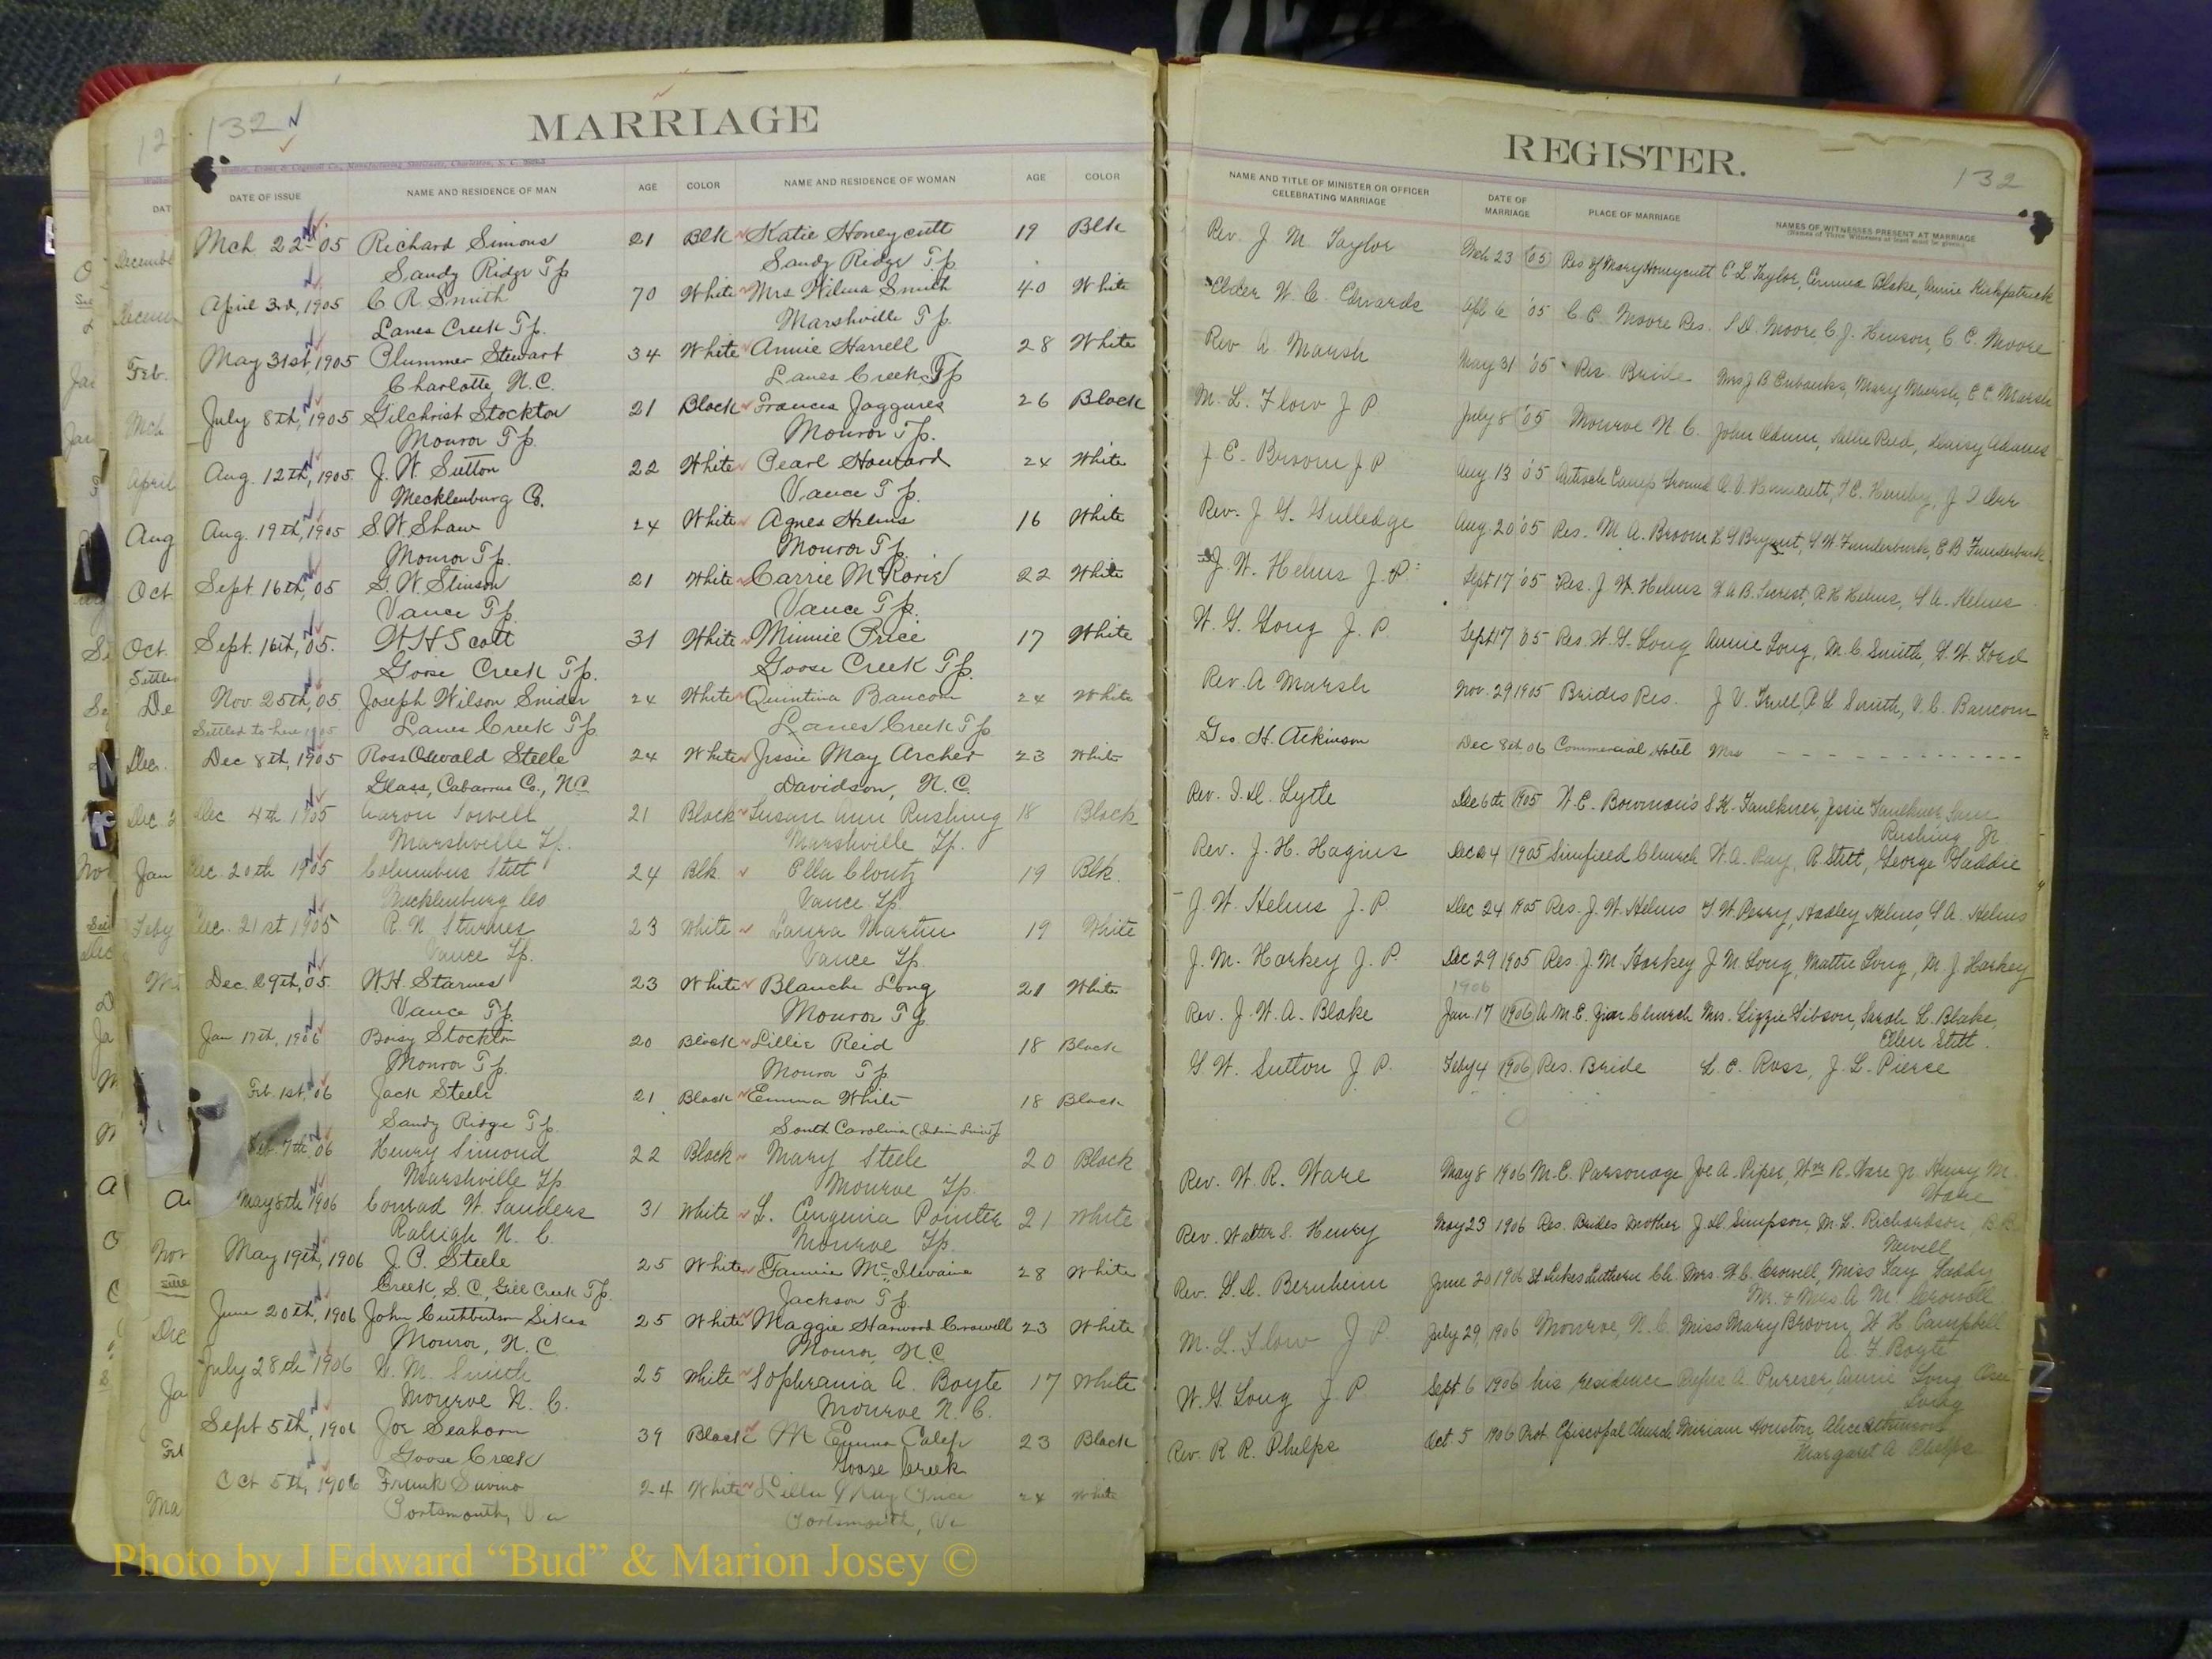 132
MARRIAGE
DATE OF ISSUE NAME AND RESIDENCE OF MAN AGE COLOR NAME AND RESIDENCE OF WOMAN AGE COLOR
Mch 22 '05 Richard Simons 21 Blk Katie Honeycutt 19 Blk
Sandy Ridge Tp Sandy Ridge Tp.
April 3rd, 1905 C R Smith 70 White Mrs Wilma Smith 40 White
Lanes Creek Tp. Marshville Tp.
May 31st, 1905 Plummer Stewart 34 White Annie Harrell 28 White
Charlotte, N.C. Lanes Creek Tp
July 8th, 1905 Gilchrist Stockton 21 Black Frances Jaggures 26 Black
Monroe Tp. Monroe Tp.
Aug. 12th, 1905. J. W. Sutton 22 White Pearl Howard 24 White
Mecklenburg Co. Vance Tp.
Aug. 19th, 1905 S. W. Shaw 24 White Agnes Helms 16 White
Monroe Tp. Monroe Tp.
Sept. 16th, 05 G. W. Stinson 21 White Carrie McRorie 22 White
Vance Tp. Vance Tp.
Sept. 16th, '05. W H Scott 31 White Minnie Price 17 White
Goose Creek Tp. Goose Creek Tp.
Nov. 25th, 05 Joseph Wilson Snider 24 White Quintina Baucom 24 White
Settled to here 1905 Lanes Creek Tp Lanes Creek Tp
Dec 8th, 1905 Ross Oswald Steele 24 White Jessie May Archer 23 White
Glass, Cabarrus Co., N.C. Davidson, N.C.
Dec 4th 1905 Aaron Sowell 21 Black Susan Ann Rushing 18 Black
Marshville Tp. Marshville Tp.
Dec. 20th 1905 Columbus Stitt 24 Blk. Ella Clontz 19 Blk.
Mecklenburg Co Vance Tp.
Dec. 21st 1905 R. N. Starnes 23 White Laura Martin 19 White
Vance Tp. Vance Tp.
Dec. 29th, 05. W. H. Starnes 23 White Blanche Long 21 White
Vance Tp. Monroe Tp
Jan 17th, 1906 Boisy Stockton 20 Black Lillie Reid 18 Black
Monroe Tp. Monroe Tp
Feb. 1st, '06 Jack Steele 21 Black Emma White 18 Black
Sandy Ridge Tp. South Carolina
Feb. 7th, 06 Henry Simond 22 Black Mary Steele 20 Black
Marshville Tp Monroe Tp.
May 8th 1906 Conrad W. Sanders 31 White L. Eugenia Pointer 21 White
Raleigh N. C. Monroe Tp.
May 19th, 1906 J. P. Steele 25 White Fannie McIlwaine 28 White
Creek, S.C., Gill Creek Tp. Jackson Tp
June 20th, 1906 John Cuthbertson Sikes 25 White Maggie Stanwood Crowell 23 White
Monroe, N.C. Monroe, N.C.
July 28th 1906 W. M. Smith 25 White Sophrania A. Boyte 17 White
Monroe N. C. Monroe N. C.
Sept 5th, 1906 Joe Seahorn 39 Black M Emma Calep 23 Black
Goose Creek Goose Creek
Oct 5th, 1906 Frank Savino 24 White Lilla May Price 24 White
Portsmouth, Va Portsmouth, Va
REGISTER.
132
NAME AND TITLE OF MINISTER OR OFFICER CELEBRATING MARRIAGE DATE OF MARRIAGE PLACE OF MARRIAGE NAMES OF WITNESSES PRESENT AT MARRIAGE
(Names of Three Witnesses at least must be given.)
Rev. J. M. Taylor Mch 23 '05 Res of Mary Honeycutt C L Taylor, Blake, Annie Kirkpatrick
Elder W. C. Edwards Apl 6 '05 C. C. Moore Res. S. D. Moore, C. J. Hinson, C C. Moore
Rev A. Marsh May 31 '05 Res. Bride Mrs J B Eubanks, Mary Marsh, E C. Marsh
M. L. Flow J P July 8 '05 Monroe N. C. John Adams, Sallie Reid, Daisy Adams
J. E. Broom J P Aug. 13 '05 Antioch Camp Ground
Rev. J G. Gulledge Aug 20 '05 Res. M. A. Broom L G Bryant, G W. Funderburk, C B Funderburk
J. W. Helms J. P. Sept 17 '05 Res. J W. Helms W A B. Secrest, R H Helms, S A. Helms
W. G. Long J. P. Sept 17 '05 Res. W. G. Long Annie Long, M. C. Smith, G. W. Ford
Rev. A Marsh Nov. 29 1905 Brides Res. J V. Trull, A L. Smith, V. C. Baucom
Geo. H. Atkinson Dec 8th, 06 Commercial Hotel Mrs
Rev. I. D. Lytle Dec 6th 1905 W. C. Bowman's S. K. Faulkner, Jessie Faulkner, Sam
Rushing Jr
Rev. J. H. Hagins Dec 24 1905 Simfield Church W. A. Ray, R. Stitt, George Gaddie
J. W. Helms J. P. Dec 24 1905 Res. J. W. Helms T. W. Perry, Hadley Helms, S A. Helms
J. M. Harkey J. P. Dec 29 1905 Res. J. M. Harkey J M. Long, Mattie Long, M. J Harkey
1906
Rev. J. W. A. Blake Jan. 17 1906 A. M. E. Zion Church Mrs. Lizzie Gibson, Sarah L. Blake,
Ellen Stitt.
G. W. Sutton J P. Feby 4 1906 Res. Bride L. C. Ross, J. L. Pierce
Rev. W. R. Ware May 8 1906 M. E. Parsonage Joe A. Piper, Wm R. Ware Jr. Henry M.
Ware
Rev. Walter S. Henry May 23 1906 Res. Brides Mother J. D. Simpson, M. L. Richardson, B. B.
Newell
Rev. G. D. Bernheim June 20 1906 St. Lukes Lutheran Ch. Mrs. W. C. Crowell, Miss Fay Gaddy,
Mr. & Mrs. A M. Crowell
M. L. Flow J P. July 29, 1906 Monroe, N. C. Miss Mary Broom, W H. Campbell
A. F. Boyte
W. G. Long J. P Sept. 6 1906 his residence Rufus A. Purser, Annie Long,
Long
Rev. R R. Phelps Oct 5 1906 Prot. Episcopal Church Miriam Houston, Alice Atkinson
Margaret A. Phelps
Photo by J Edward “Bud” & Marion Josey ©